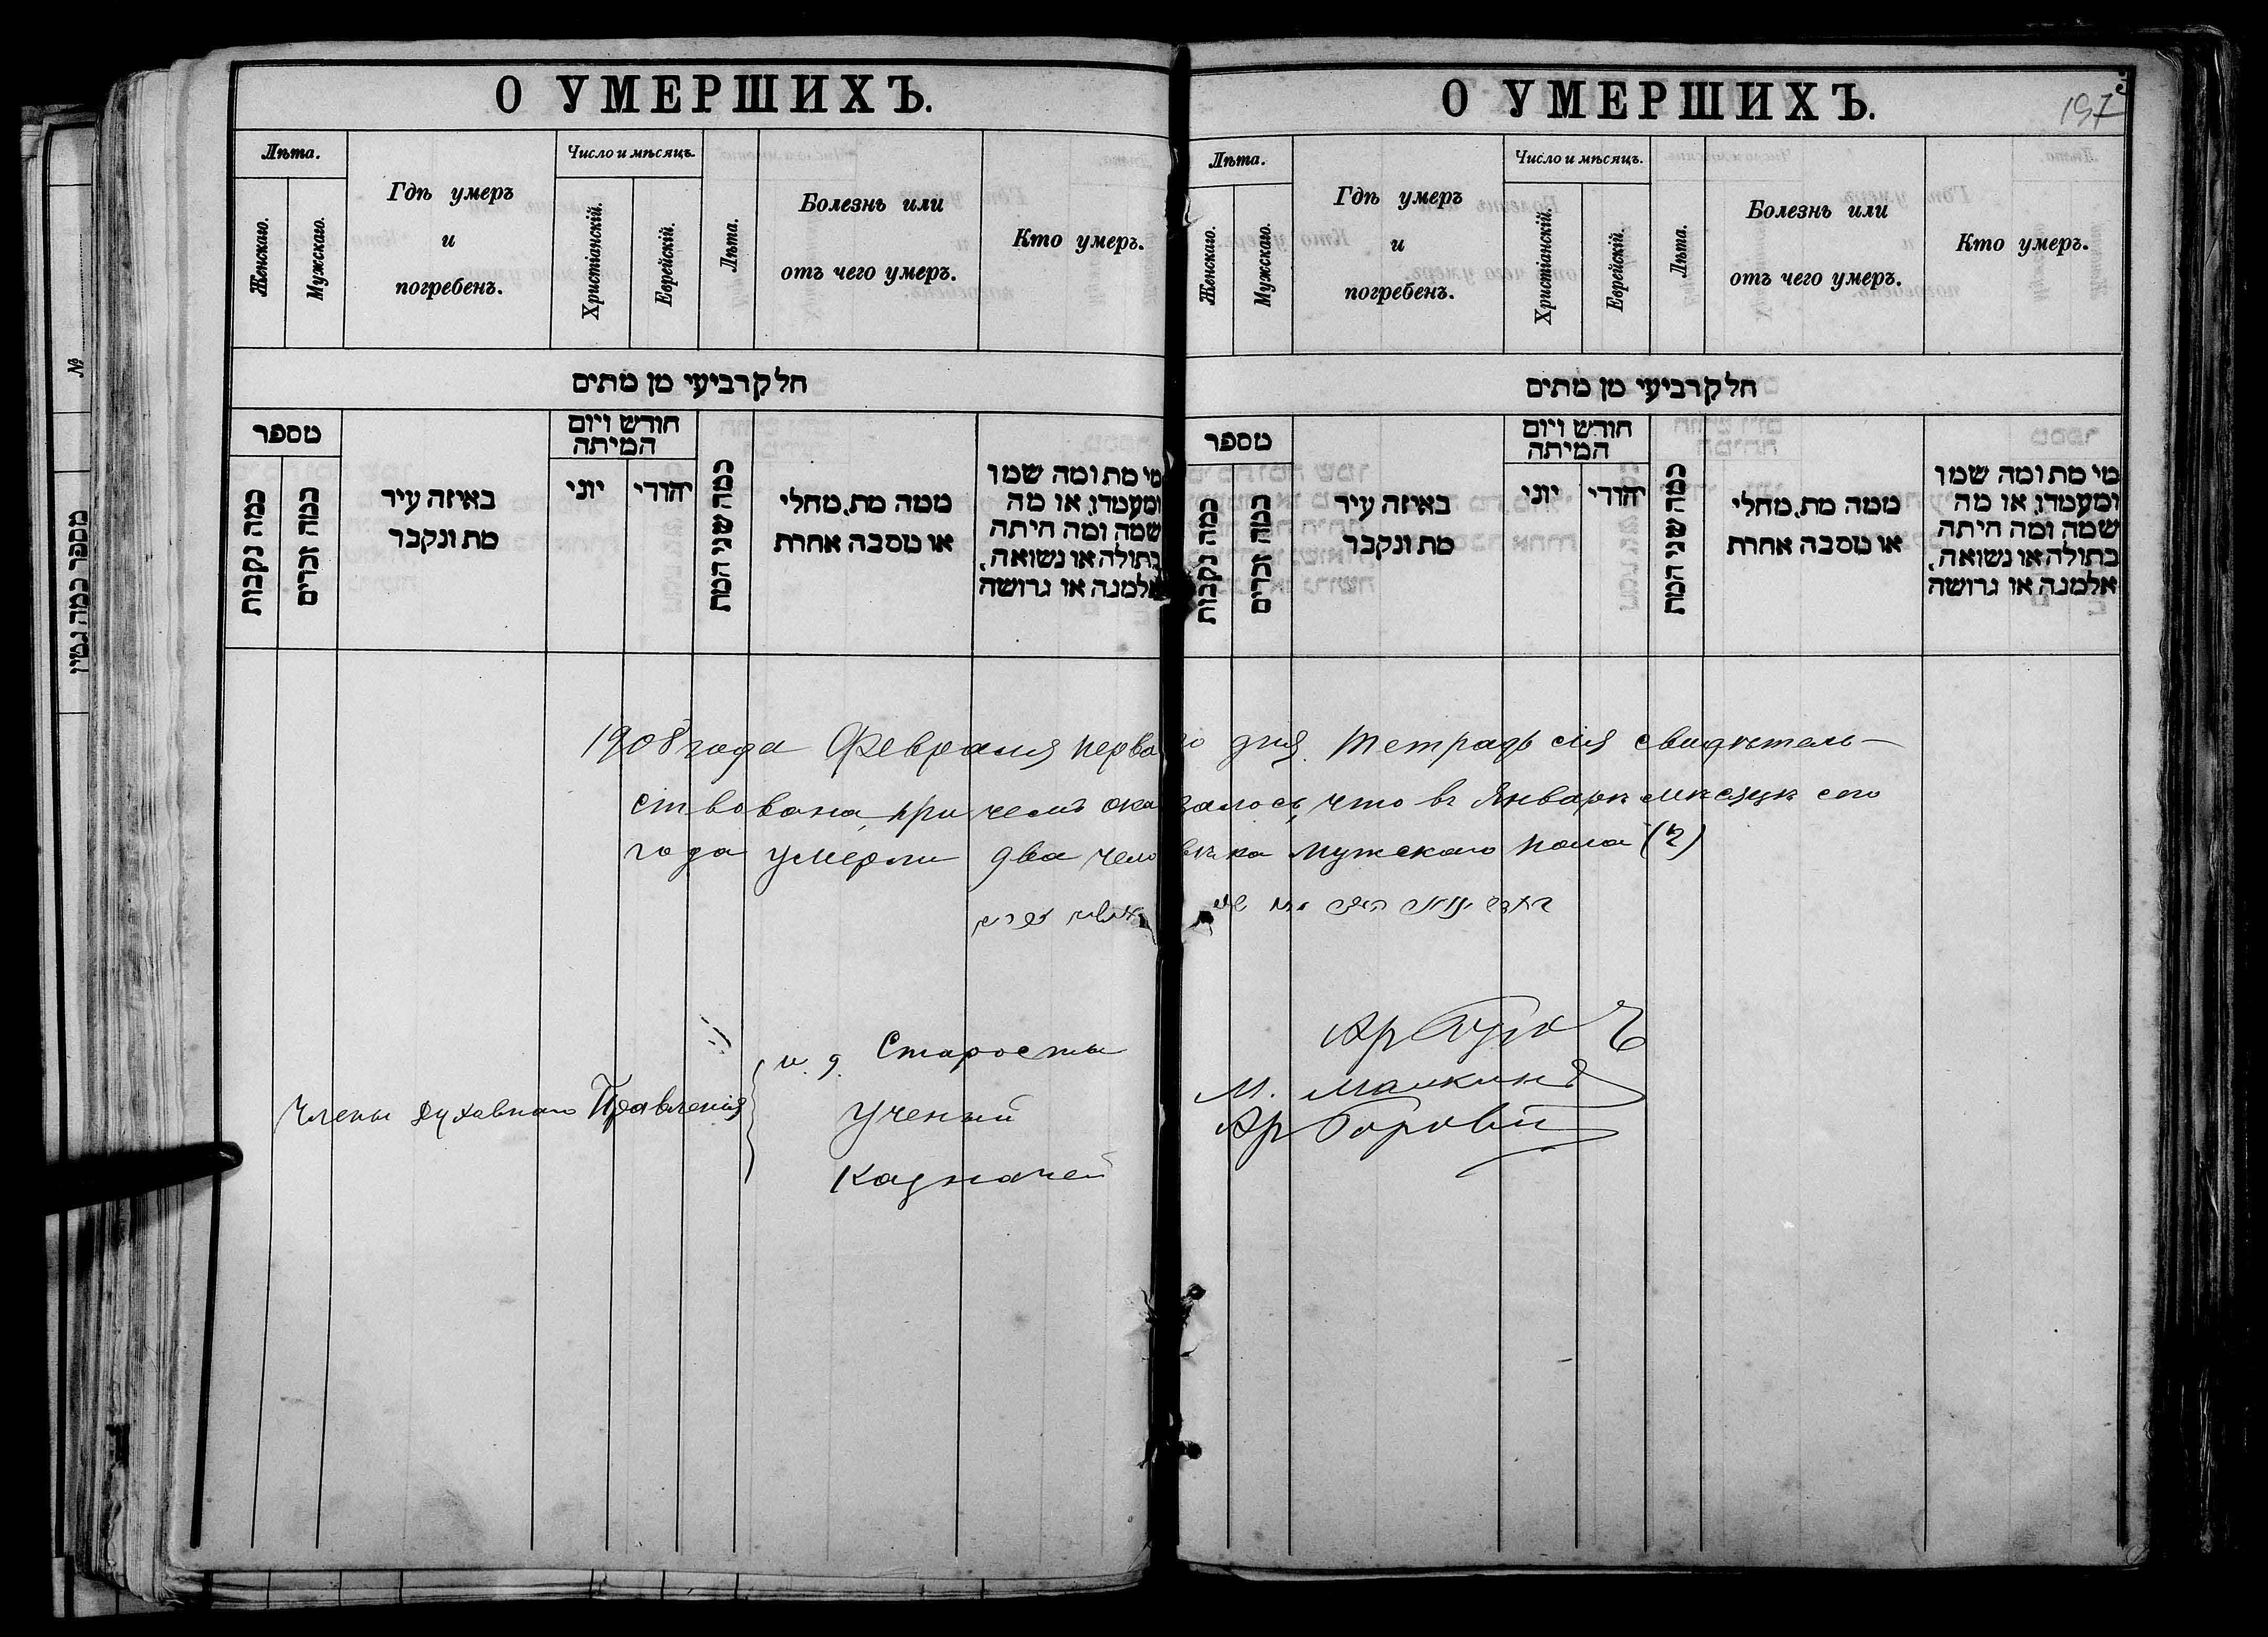 О УМЕРШИХЪ.
Лѣта.
Женскаго.
Мужскаго.
Гдѣ умеръ
и
погребенъ.
Число и мѣсяцъ.
Христіанскій.
Еврейскій.
Лѣта.
Болезнь или
отъ чего умеръ.
Кто умеръ.
חלק רביעי מן מתים
מספר
כמה נקבות
כמה זכרים
באיזה עיר
מת ונקבר
חודש ויום
המיתה
יוני
יהודי
כמה שני המת
ממה מת, מחלי
או מסבה אחרת
מי מת ומה שמו
ומעמדו, או מה
שמה ומה היתה
בתולה או נשואה,
אלמנה או גרושה
О УМЕРШИХЪ.
197
Лѣта.
Женскаго.
Мужскаго.
Гдѣ умеръ
и
погребенъ.
Число и мѣсяцъ.
Христіанскій.
Еврейскій.
Лѣта.
Болезнь или
отъ чего умеръ.
Кто умеръ.
חלק רביעי מן מתים
מספר
כמה נקבות
כמה זכרים
באיזה עיר
מת ונקבר
חודש ויום
המיתה
יוני
יהודי
כמה שני המת
ממה מת, מחלי
או מסבה אחרת
מי מת ומה שמו
ומעמדו, או מה
שמה ומה היתה
בתולה או נשואה,
אלמנה או גרושה
1908 года Февраля перваго дня. Тетрадь сія свидѣтель-
ствована, при чемъ оказалось, что въ Январѣ мѣсяцѣ сего
года умерли два человѣка мужскаго пола (2)
Члены Духовнаго Правленія
и. д. Старосты
Ученый
Казначей
М.
№
מספר כמה גטין